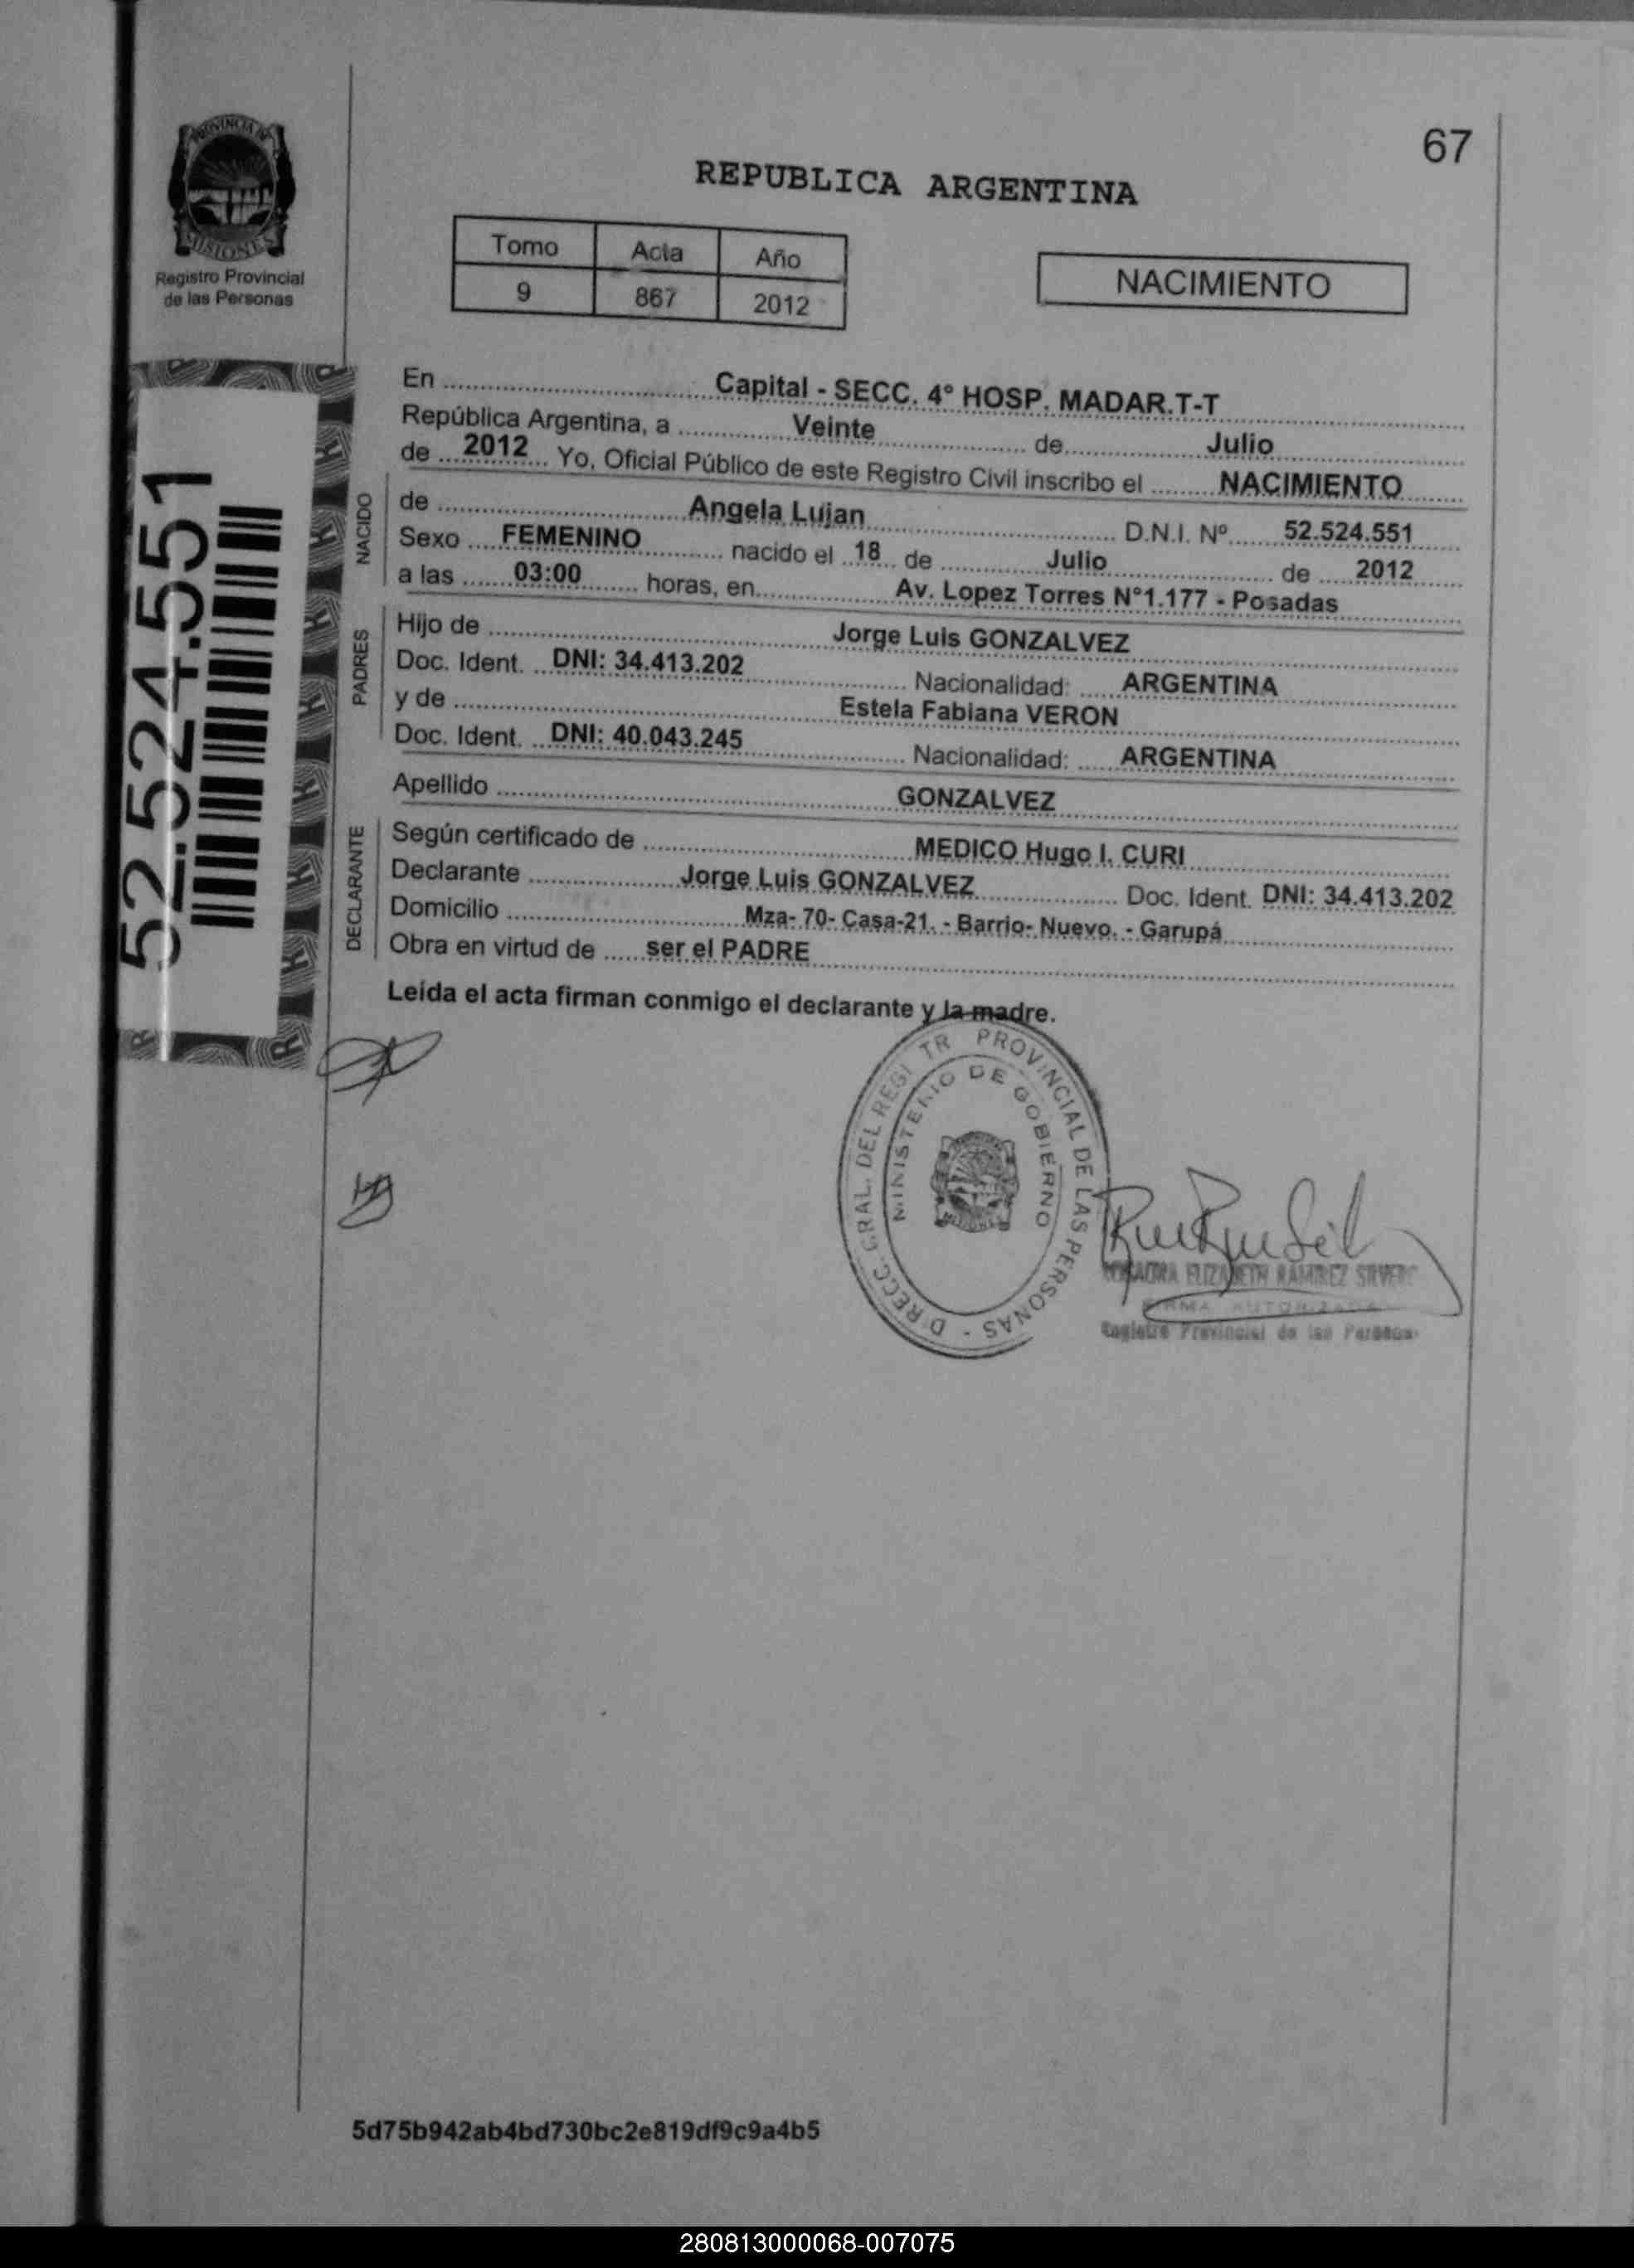 67
PROVINCIA DE
MISIONES
Registro Provincial
de las Personas
REPUBLICA ARGENTINA
Tomo Acta Año
9 867 2012
NACIMIENTO
52.524.551
En Capital - SECC. 4° HOSP. MADAR.T-T
República Argentina, a Veinte de Julio
de 2012 Yo, Oficial Público de este Registro Civil inscribo el NACIMIENTO
NACIDO
de Angela Lujan D.N.I. Nº 52.524.551
Sexo FEMENINO nacido el 18 de Julio de 2012
a las 03:00 horas, en Av. Lopez Torres N°1.177 - Posadas
PADRES
Hijo de Jorge Luis GONZALVEZ
Doc. Ident. DNI: 34.413.202 Nacionalidad: ARGENTINA
y de Estela Fabiana VERON
Doc. Ident. DNI: 40.043.245 Nacionalidad: ARGENTINA
Apellido GONZALVEZ
DECLARANTE
Según certificado de MEDICO Hugo I. CURI
Declarante Jorge Luis GONZALVEZ Doc. Ident. DNI: 34.413.202
Domicilio Mza- 70- Casa-21. - Barrio- Nuevo. - Garupá
Obra en virtud de ser el PADRE
Leida el acta firman conmigo el declarante y la madre.
PROVINCIAL DE LAS PERSONAS
MINISTERIO DE GOBIERNO
MISIONES
ELIZABETH RAMIREZ
FIRMA AUTORIZADA
Registro Provincial de las Personas
5d75b942ab4bd730bc2e819df9c9a4b5
280813000068-007075